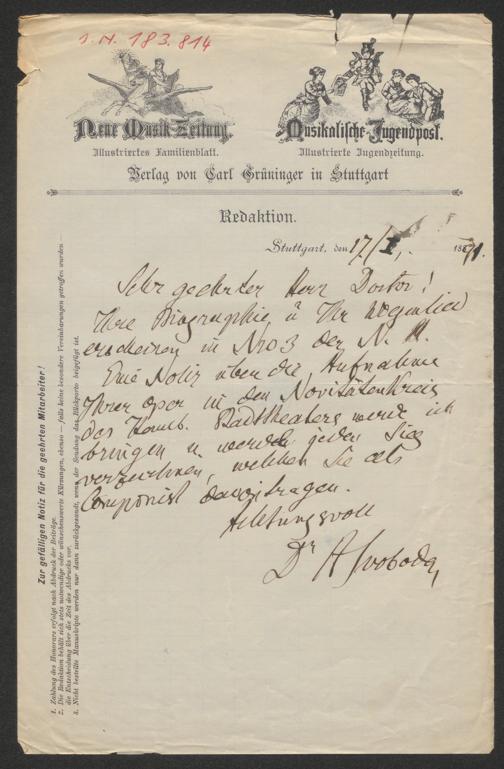 I.N. 183.814
Neue Musik-Zeitung.
Illustriertes Familienblatt.
Musikalische Jugendpost.
Illustrierte Jugendzeitung.
Verlag von Carl Grüninger in Stuttgart
Redaktion.
Stuttgart, den 17/I. 1891.
Sehr geehrter Herr Doctor!
Ihre Biographie u Ihr Wiegenlied
erscheinen in Nro 3 der N. M.
Eine Notiz über die Aufnahme
Ihrer Oper in den Novitätenkreis
des Hamb. Stadttheaters werde ich
bringen u. werde jeden Sieg
verzeichnen, welchen Sie als
Componist davontragen.
Achtungsvoll
Dr A Svoboda
Zur gefälligen Notiz für die geehrten Mitarbeiter!
1. Zahlung des Honorars erfolgt nach Abdruck der Beiträge.
2. Die Redaktion behält sich stets notwendige oder wünschenswerte Kürzungen, ebenso — falls keine besondere Vereinbarungen getroffen wurden —
die Entscheidung über die Zeit des Abdrucks vor.
3. Nicht bestellte Manuskripte werden nur dann zurückgesandt, wenn der Sendung das Rückporto beigefügt ist.